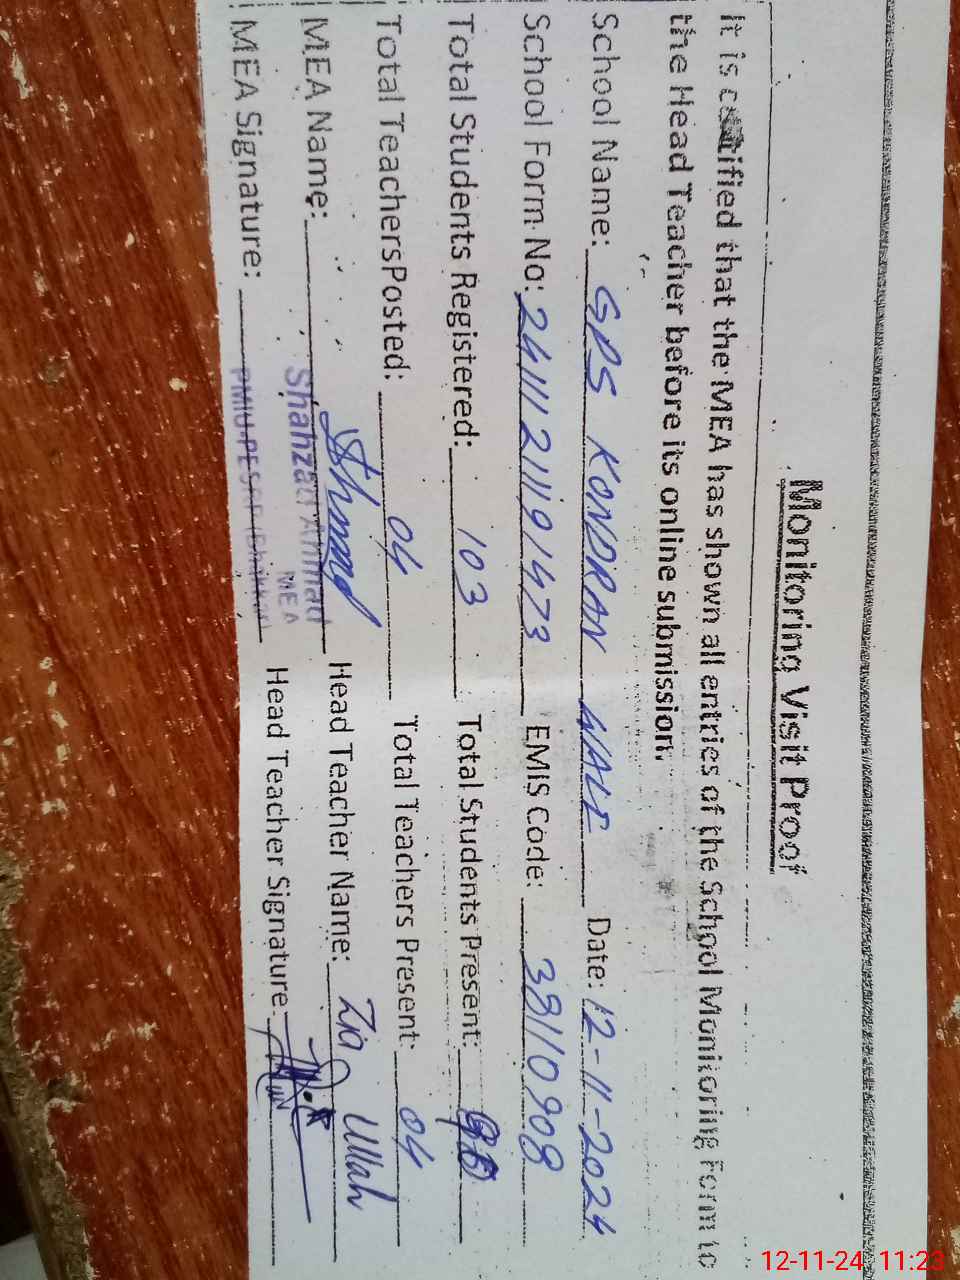 Monitoring Visit Proof
It is certified that the MEA has shown all entries of the School Monitoring Form to
the Head Teacher before its online submission.
School Name: GPS KONDRAN WALE Date: 12-11-2024
School Form No: 24111211191473 EMIS Code: 38110908
Total Students Registered: 103 Total Students Present:
Total Teachers Posted: 04 Total Teachers Present: 04
MEA Name: Shahzad Ahmad MEA Head Teacher Name: Zia Ullah
MEA Signature: PMIU-PESRP (Bhakkar) Head Teacher Signature:
12-11-24 11:23